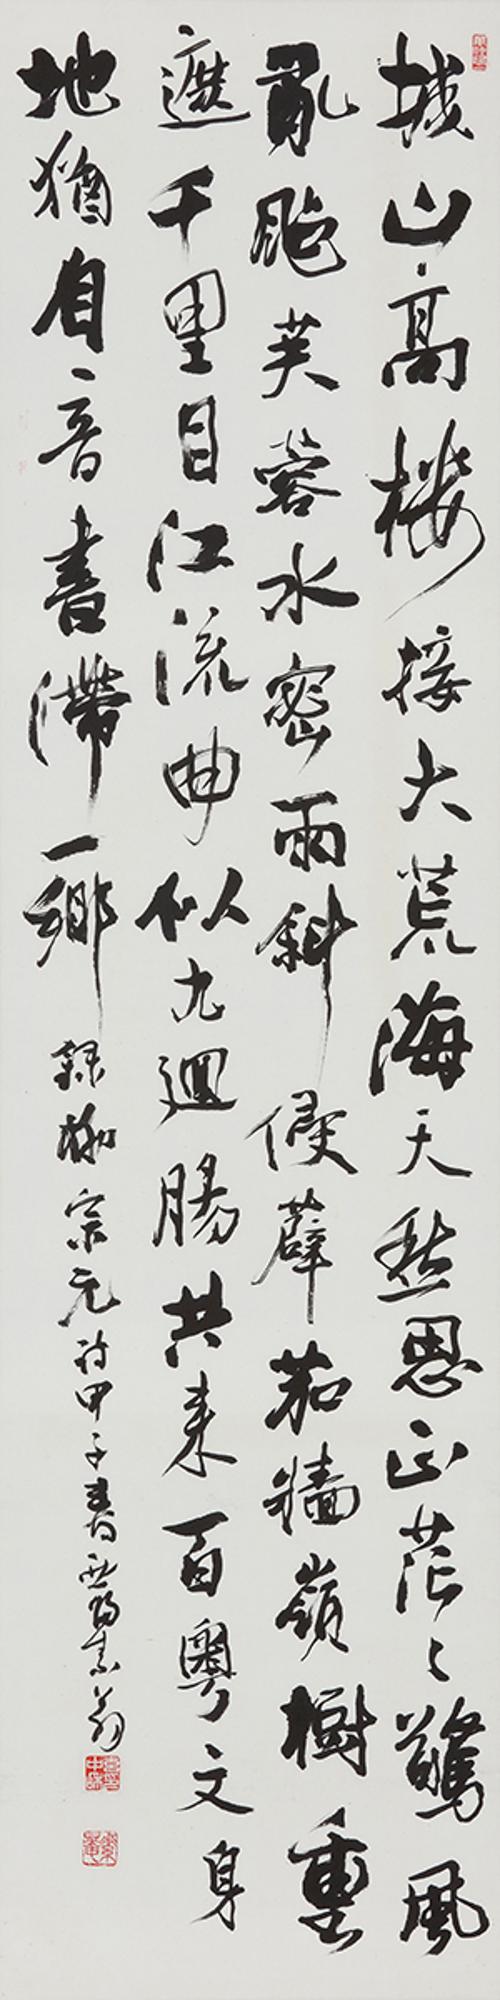 城山高楼接大荒海天愁思正茫々驚風
亂颭芙蓉水密雨斜侵薜茄牆嶺樹重
遮千里目江流曲似九迴腸共来百粵文身
地猶自音書滯一鄉 錄柳宗元詩甲子春